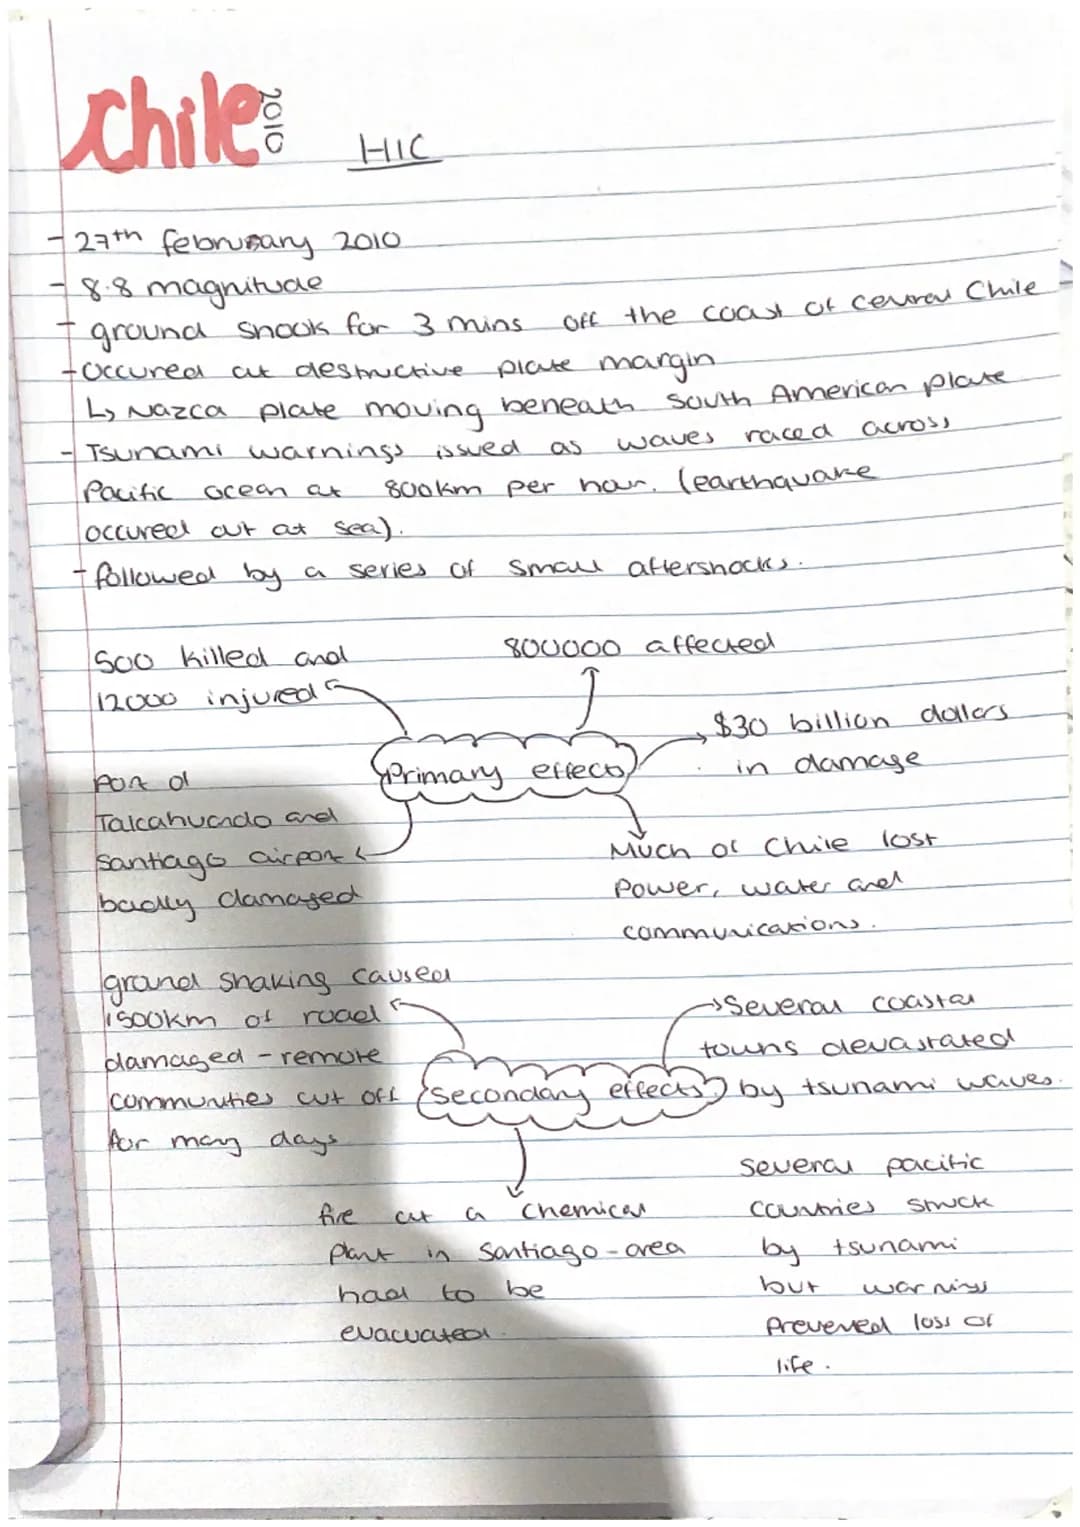 Chile 2010
HIC
- 27th february 2010
- 8.8 magnitude
- ground shook for 3 mins off the coast of central Chile
- Occured at destructive plate margin
↳ Nazca plate moving beneath South American plate
- Tsunami warnings issued as waves raced across
Pacific ocean at 800km per hour. (earthquake
occured out at sea).
- followed by a series of small aftershocks.
500 killed and
12000 injured
800000 affected
$30 billion dollars
in damage
Primary effects
Port of
Talcahuando and
Santiago airport
badly damaged
Much of Chile lost
Power, water and
communications.
ground shaking caused
1500km of road
damaged - remote
communities cut off
for many days
Secondary effects
Several coastal
towns devastated
by tsunami waves.
fire at a chemical
plant in Santiago - area
had to be
evacuated.
Several pacific
countries struck
by tsunami
but warnings
prevened loss of
life.